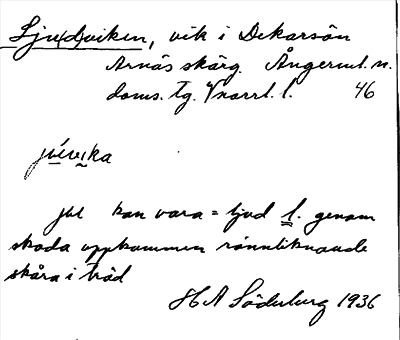 Sju(d)viken, vik i Dekarsön
Arnäs skärg. Ångerml. n.
doms. tg. Y norrl. l. 46
ju̱vi̱ka
ju kan vara = ljud l. genom
skada uppkommen rännliknande
skåra i träd
H A Söderberg 1936